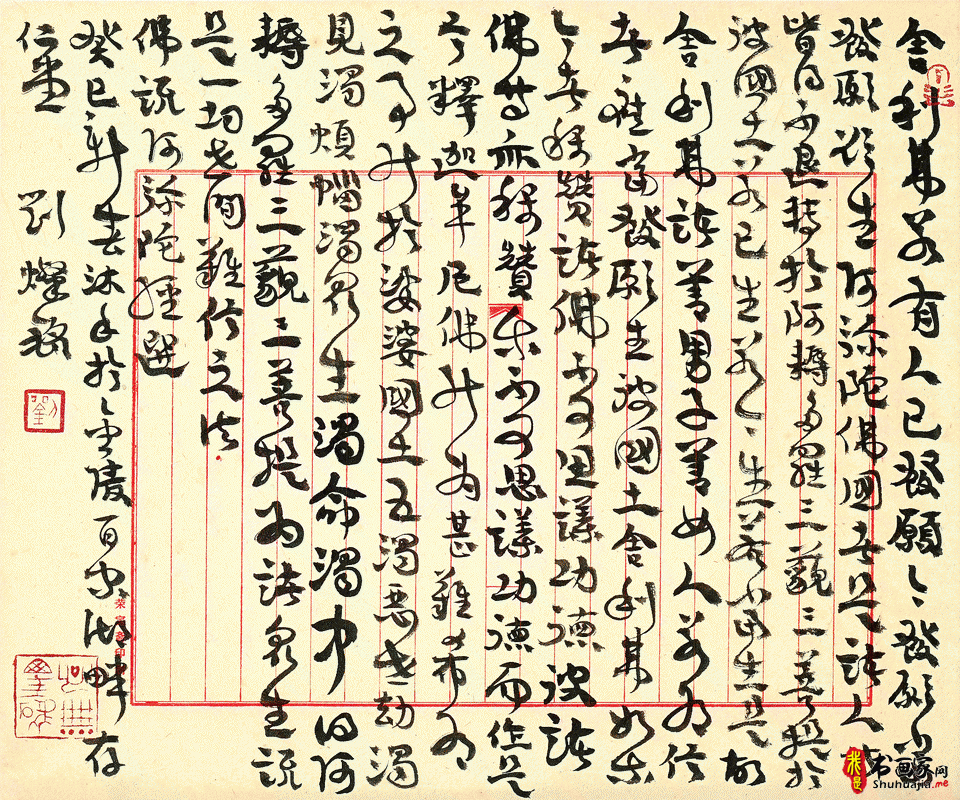 舍利弗若有人已發願今發願當
發願欲生阿彌陀佛國者是諸人等
皆得不退轉於阿耨多羅三藐三菩提於
彼國土若已生若今生若當生是故
舍利弗諸善男子善女人若有信
者應當發願生彼國土舍利弗如我
今者稱讚諸佛不可思議功德彼諸
佛等亦稱贊我不可思議功德而作是
言釋迦牟尼佛能為甚難希有
之事能於娑婆國土五濁惡世劫濁
見濁煩惱濁眾生濁命濁中得阿
耨多羅三藐三菩提為諸眾生說
是一切世間難信之法
佛說阿彌陀經選
癸巳新春沐手於金陵百家湖畔存
仁堂 劉燦銘
劉
书画家网
Shuhuajia.me